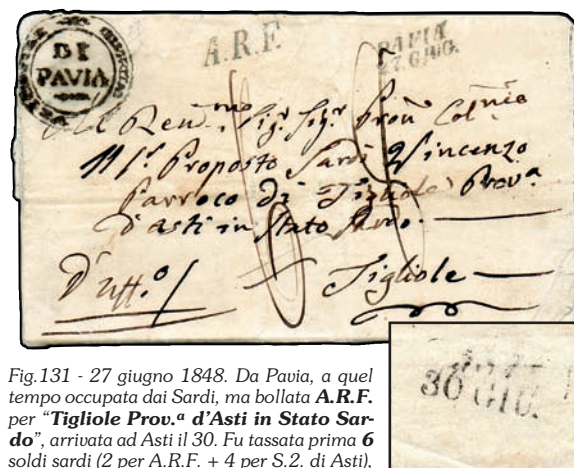 DI
PAVIA
A.R.F.
PAVIA
27. GIUG.
Proposto Sardi Vincenzo
Parroco di Tigliole Prov.ª
d'Asti in Stato Sardo
D'uff.º
Tigliole
30 GIU.
Fig.131 - 27 giugno 1848. Da Pavia, a quel
tempo occupata dai Sardi, ma bollata A.R.F.
per “Tigliole Prov.ª d’Asti in Stato Sar-
do”, arrivata ad Asti il 30. Fu tassata prima 6
soldi sardi (2 per A.R.F. + 4 per S.2. di Asti),